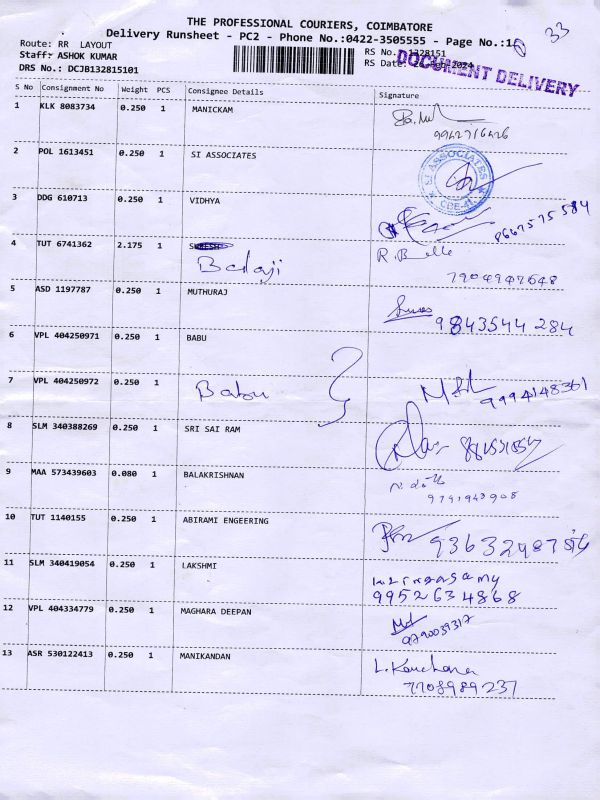 THE PROFESSIONAL COURIERS, COIMBATORE
Delivery Runsheet - PC2 - Phone No.:0422-3505555 - Page No.:1
33
Route: RR LAYOUT
Staff: ASHOK KUMAR
DRS No.: DCJB132815101
RS No.: 1328151
RS Date:
DOCUMENT DELIVERY
S No Consignment No Weight PCS Consignee Details Signature
1 KLK 8083734 0.250 1 MANICKAM
9942716426
2 POL 1613451 0.250 1 SI ASSOCIATES
SI ASSOCIATES
CBE-41
3 DDG 610713 0.250 1 VIDHYA
4 TUT 6741362 2.175 1
Balaji
7904947648
5 ASD 1197787 0.250 1 MUTHURAJ
9843544284
6 VPL 404250971 0.250 1 BABU
7 VPL 404250972 0.250 1 Babu
9994148361
8 SLM 340388269 0.250 1 SRI SAI RAM
9 MAA 573439603 0.080 1 BALAKRISHNAN
9791943908
10 TUT 1140155 0.250 1 ABIRAMI ENGEERING
11 SLM 340419054 0.250 1 LAKSHMI
9952634868
12 VPL 404334779 0.250 1 MAGHARA DEEPAN
9790039317
13 ASR 530122413 0.250 1 MANIKANDAN
L. Kanchana
7708989237